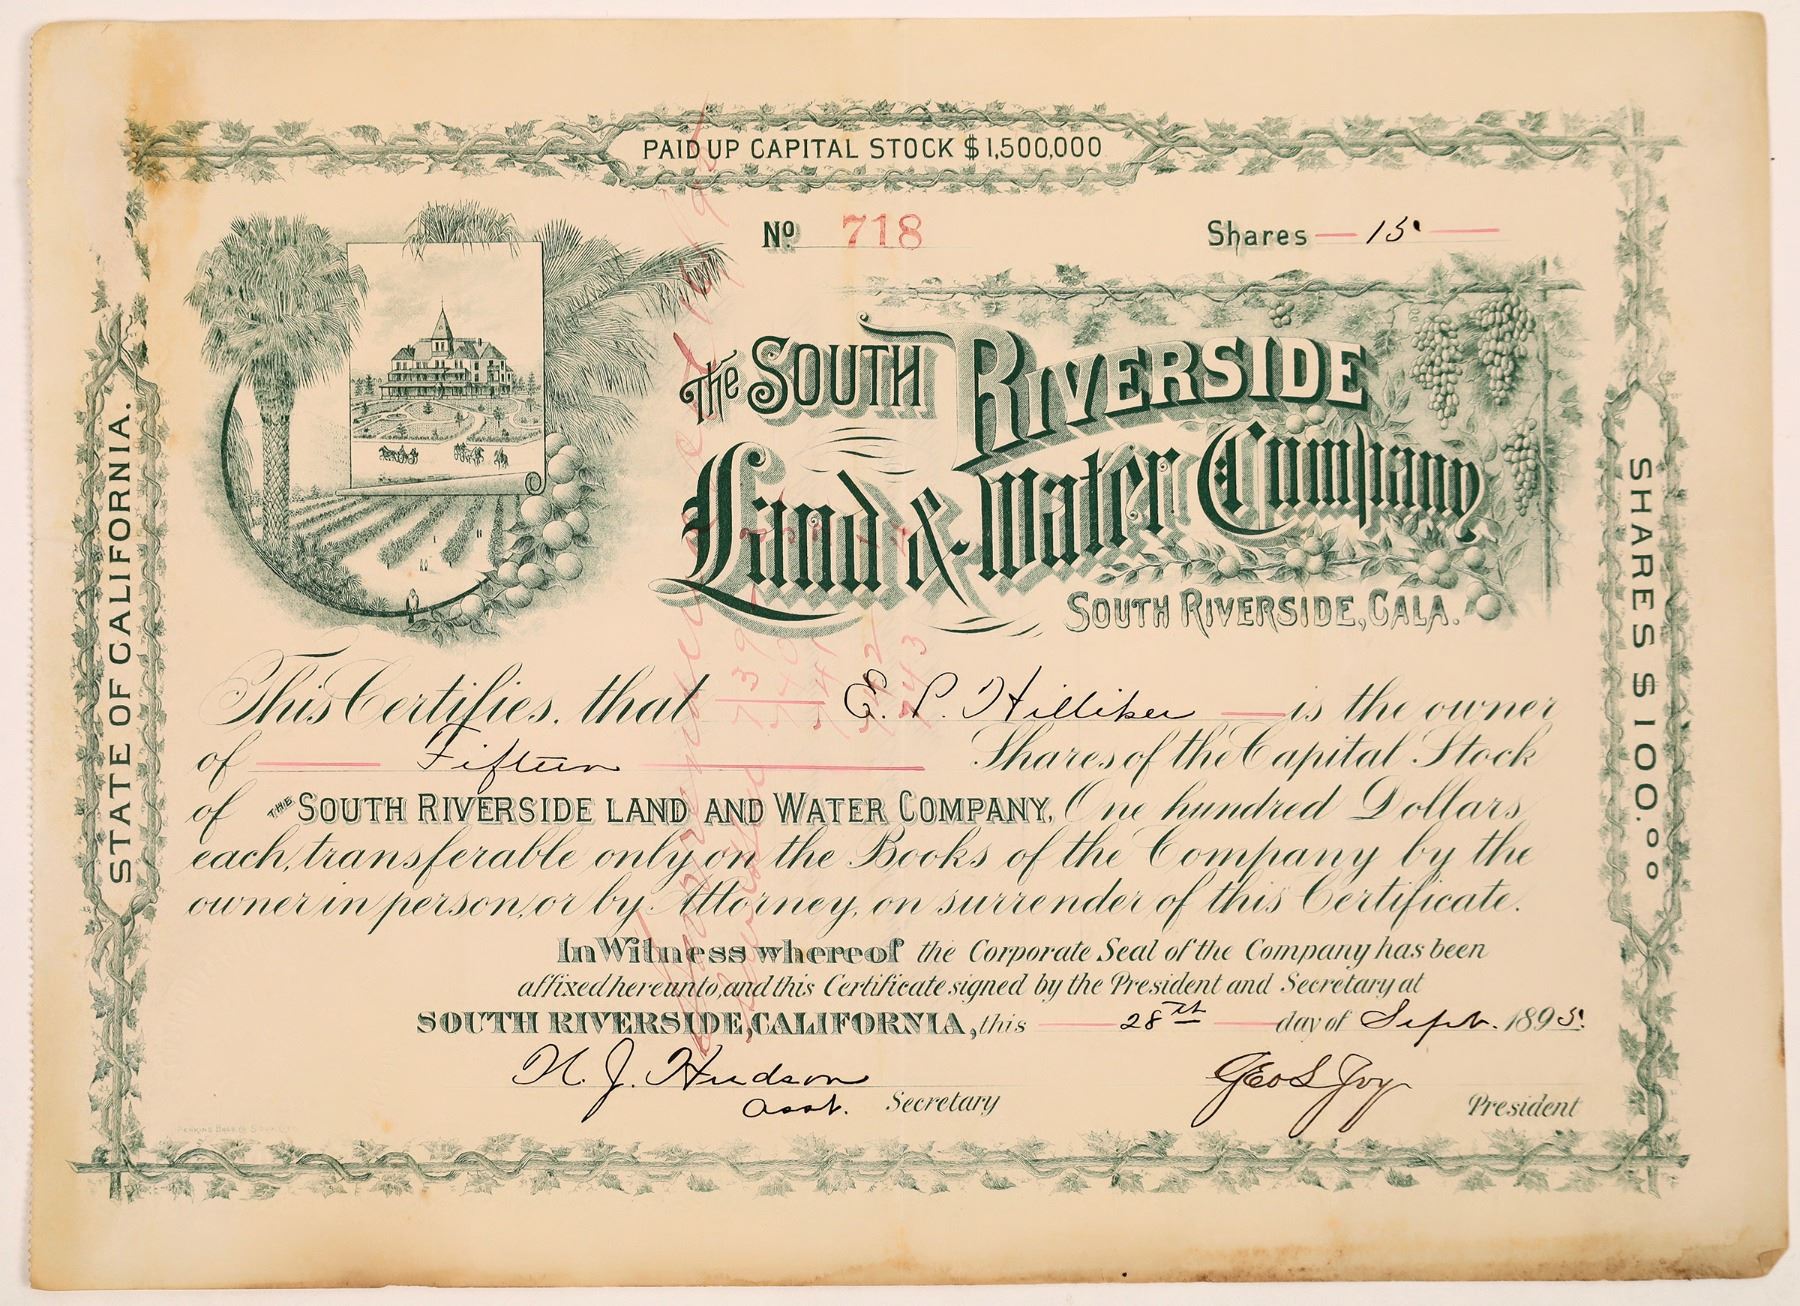 PAID UP CAPITAL STOCK $1,500,000
No 718
Shares 15
The South Riverside
Land & Water Company
South Riverside, Cala.
STATE OF CALIFORNIA.
SHARES $100.00
This Certifies, that E. P. Hilliker is the owner
of Fifteen Shares of the Capital Stock
of THE SOUTH RIVERSIDE LAND AND WATER COMPANY, One hundred Dollars
each, transferable only on the Books of the Company by the
owner in person, or by Attorney, on surrender of this Certificate.
In Witness whereof the Corporate Seal of the Company has been
affixed hereunto, and this Certificate signed by the President and Secretary at
SOUTH RIVERSIDE, CALIFORNIA, this 28th day of Sept. 1895.
N. J. Hudson
Asst. Secretary
Geo L Joy
President
739
740
741
742
743